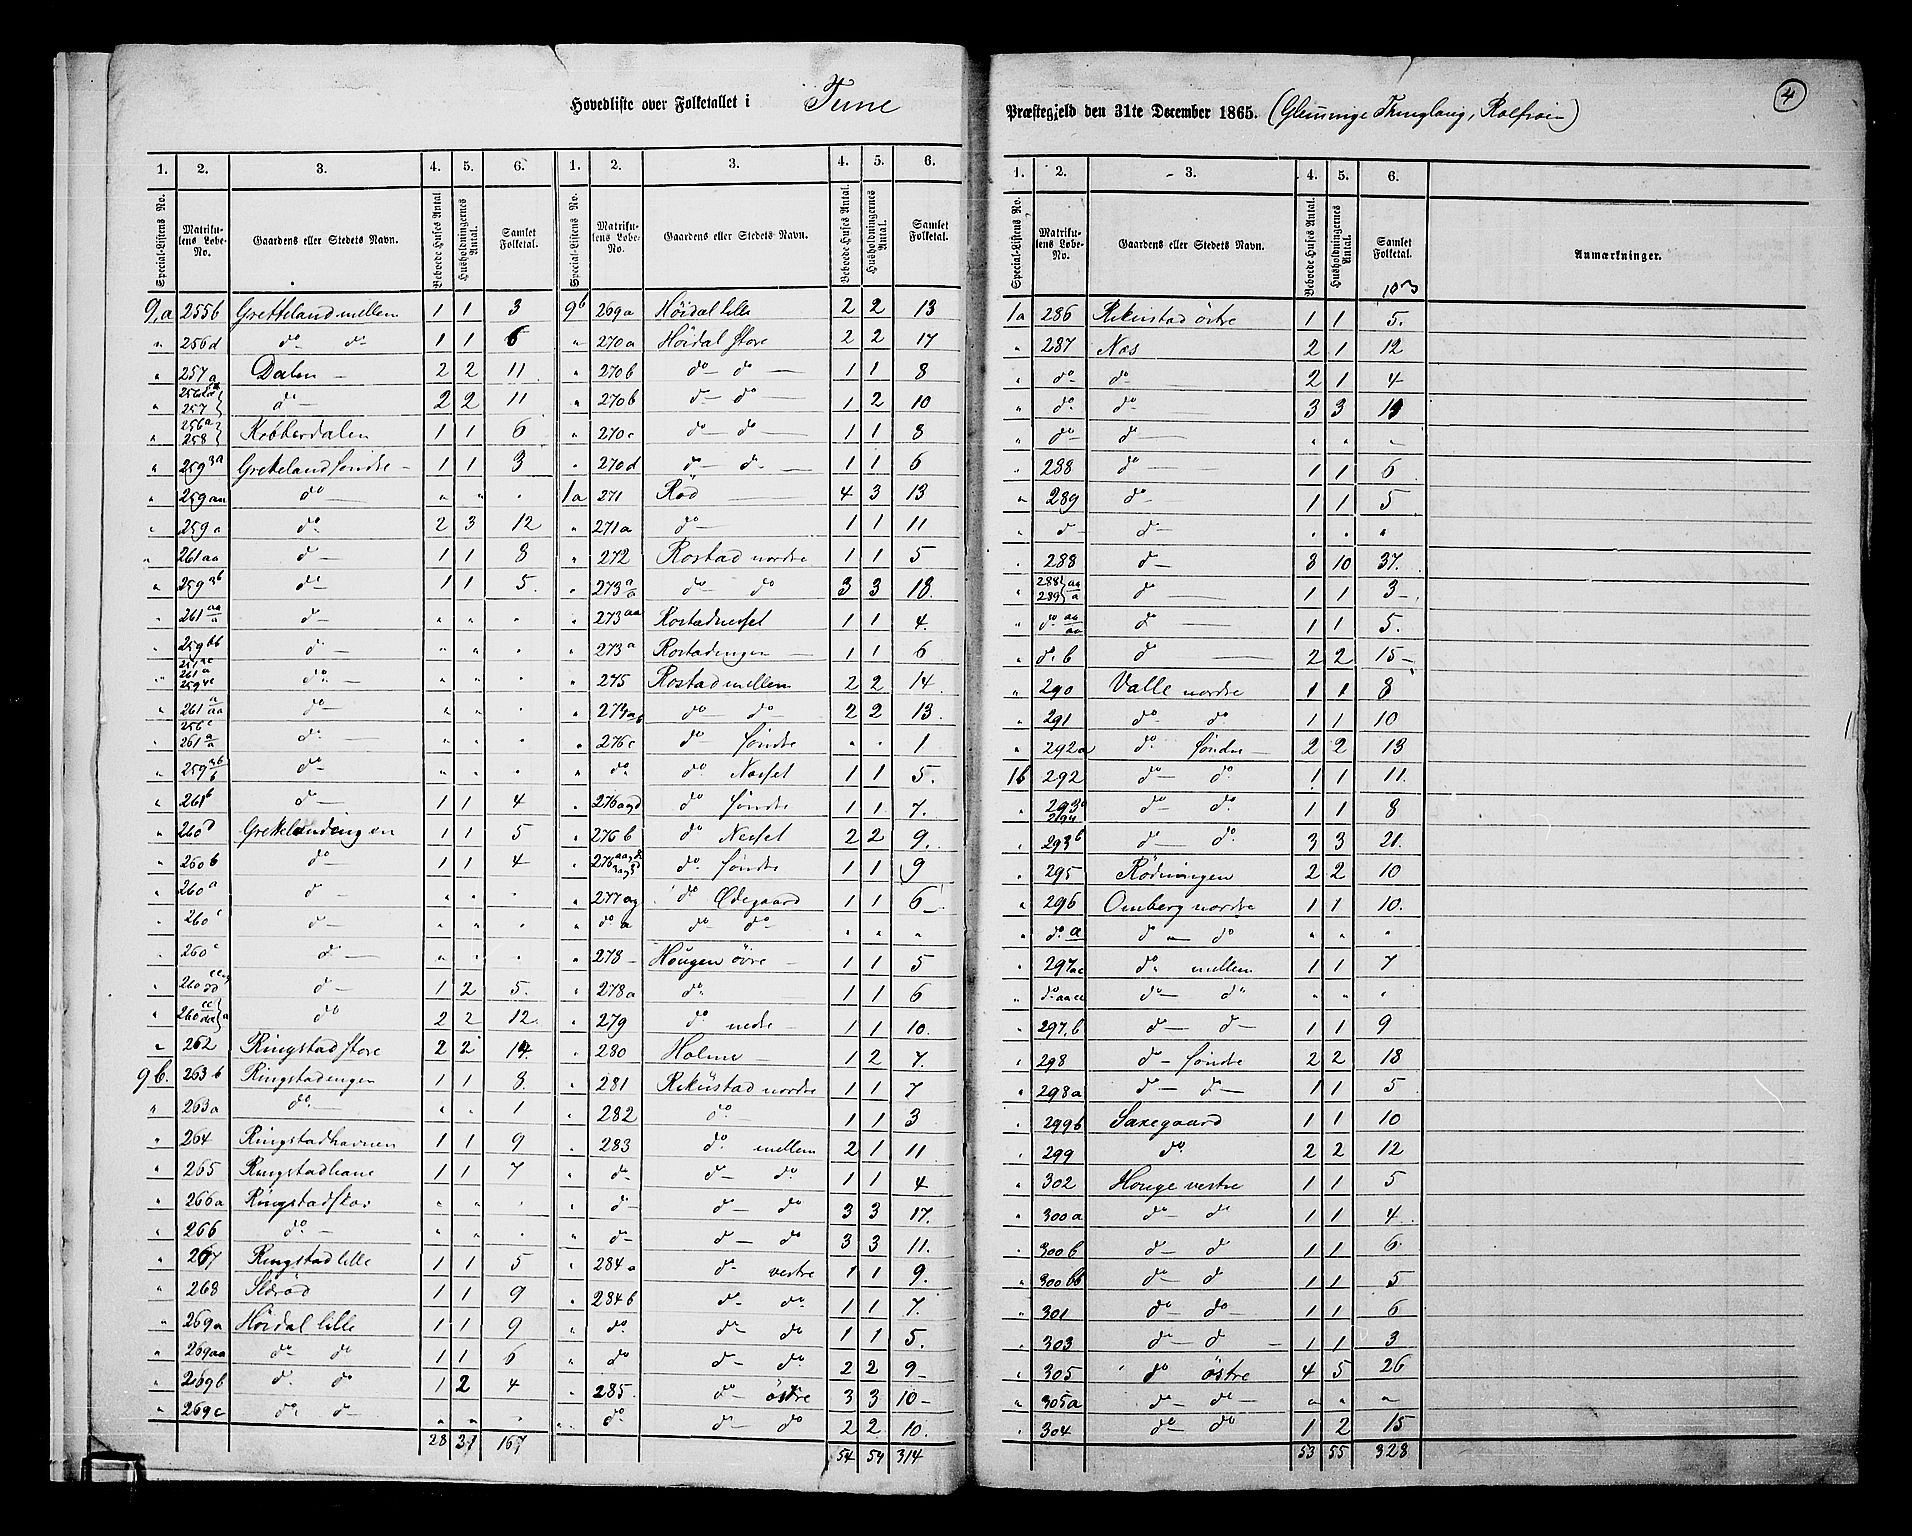 Hovedliste over Folketallet i Tune Præstegjeld den 31te December 1865. (Glemminge Thinglaug, Rolfsøen)
4
1. 2. 3. 4. 5. 6. 1. 2. 3. 4. 5. 6.
Special-Listens No. Matrikulens Løbe-No. Gaardens eller Stedets Navn. Beboede Huses Antal Husholdningernes Antal. Samlet Folketal. Special-Listens No. Matrikulens Løbe-No. Gaardens eller Stedets Navn. Beboede Huses Antal. Husholdningernes Antal. Samlet Folketal.
9,a 255b Gretteland mellem 1 1 3
" 256d do do 1 1 6
" 257a Dalen 2 2 11
" 257 do 2 2 11
" 256a 258 Kobberdalen 1 1 6
" 259 3a Grekeland søndre 1 1 3
" 259aa do " " "
" 259a do 2 3 12
" 261aa do 1 1 8
" 259 3b do 1 1 5.
" 261 aa/a do " " "
" 259bb do " " "
" do " " "
" 261 a/aa do " " "
" 261 a/a do " " "
" 259 do " " "
" 261b do 1 1 4
" 260d Grekelandengen 1 1 5
" 260b do 1 1 4
" 260a do " " "
" 260c do " " "
" 260c do " " "
" 260 do 1 2 5.
" 260 do 2 2 12.
" 262 Ringstad store 2 2 14
9b. 263b Ringstadengen 1 1 8
" 263a do " " 1
" 264 Ringstadhavnen 1 1 9
" 265 Ringstadhaue 1 1 7
" 266a Ringstadskov " " "
" 266 do " " "
" 267 Ringstad lille 1 1 5
" 268 Slørød 1 1 9
" 269a Höidal lille 1 1 9
" 269aa do do 1 1 6
" 269b do do 1 2 4
" 269c do do " " "
28 31 167
9b 269a Höidal lille 2 2 13
" 270a Höidal Store 2 2 17
" 270b do do 1 1 8
" 270b do do 1 2 10
" 270c do do 1 1 8
" 270d do do 1 1 6
1a 271 Röd 4 3 13
" 271a do 1 1 11
" 272 Rostad nordre 1 1 5
" 273 a/a do do 3 3 18.
" 273aa Rostadnesset 1 1 4.
" 273a Rostadengen 1 1 6
" 275 Rostad mellem 2 2 14.
" 274ab do do 2 2 13.
" 276c do søndre " " 1
" do do Nesset 1 1 5.
" 276 do søndre 1 1 7.
" 276b do Nesset 2 2 9.
" 276 do søndre 1 1 9
" 277ag do Ødegaard 1 1 6
" do a do do " " "
" 278 Hougen övre 1 1 5
" 278a do 1 1 6
" 279 do nedre 1 1 10.
" 280 Holme 1 2 7.
" 281 Rekustad nordre 1 1 7
" 282 do 1 1 3
" 283 do mellem 2 1 11
" do do do 1 1 4
" do do do 3 3 17.
" do do do 3 3 11.
" 284a do vestre 1 1 9.
" 284b do do 1 1 7.
" do do do 1 1 5.
" do do do 2 2 9
" 285. do östre 3 3 10
" do do do 2 2 10.
54 59 314
1. 2. 3. 4. 5. 6.
Special-Listens No. Matrikulens Løbe-No. Gaardens eller Stedets Navn. Beboede Huses Antal. Husholdningernes Antal. Samlet Folketal. Anmærkninger.
1a 286 Rekustad östre 1 1 5.
" 287 Næs 2 1 12
" do do 2 1 4
" do do 3 3 11
" do do " " "
" 288 do 1 1 6
" 289 do 1 1 5
" do do " " "
" 288 do 8 10 37.
" 288 289 aa/a do 1 1 3
" do aa/aa do 1 1 5.
" do b do 2 2 15
" 290 Valle nordre 1 1 8
" 291 do do 1 1 10
" 292a do søndre 2 2 13
1b 292 do do 1 1 11.
" 293a 294 do do 1 1 8
" 293b do do 3 3 21.
" 295 Rödningen 2 2 10
" 296 Omberg nordre 1 1 10.
" do a do do " " "
" 297ac do mellem 1 1 7
" do aacc do do " " "
" 297,b do do 1 1 9
" 298 do søndre 2 2 18
" 298a do do 1 1 5
" 299b Saxegaard 1 1 10
" 299 do 2 2 12
" 302 Houge vestre 1 1 5
" 300a do do 1 1 4
" 300b do do 1 1 6
" 300bb do do 1 1 5
" 301 do do 1 1 6
" 303 do do 1 1 3
" 305 do östre 4 5 26
" 305a do do " " "
" 304 do do 1 2 15
53 55 328